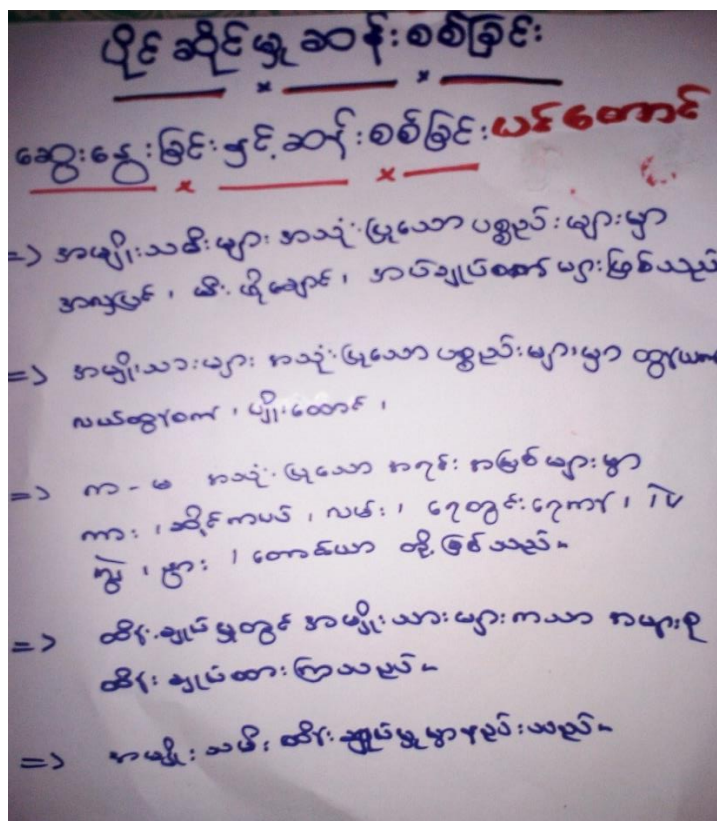 ပိုင်ဆိုင်မှုဆန်းစစ်ခြင်း
ဆွေးနွေးခြင်းနှင့်ဆန်းစစ်ခြင်း ယင်တောင်
=> အမျိုးသမီးများ အသုံးပြုသော ပစ္စည်းများမှာ
အလှပြင်၊ မီးဖိုချောင်၊ အပ်ချုပ်စက်များဖြစ်သည်
=> အမျိုးသားများ အသုံးပြုသော ပစ္စည်းများမှာ ထွန်ယက်
လယ်ထွန်စက်၊ ပျိုးထောင်၊
=> ကာ - မ အသုံးပြုသော အရင်းအမြစ်များမှာ
ကား၊ ဆိုင်ကယ်၊ လမ်း၊ ရေတွင်းရေကန်၊ TV
ကျွဲ၊ နွား၊ တောင်ယာ တို့ဖြစ်သည်။
=> ထိန်းချုပ်မှုတွင် အမျိုးသားများကသာ အများစု
ထိန်းချုပ်ထားကြသည်။
=> အမျိုးသမီး ထိန်းချုပ်မှုမှာနည်းသည်။